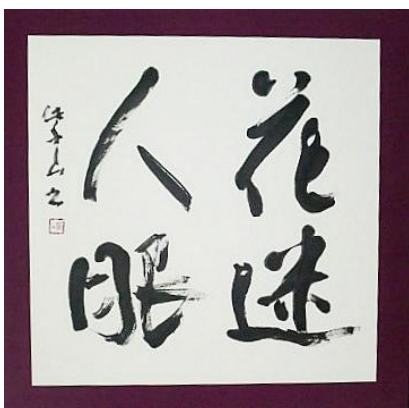 花迷
人眼